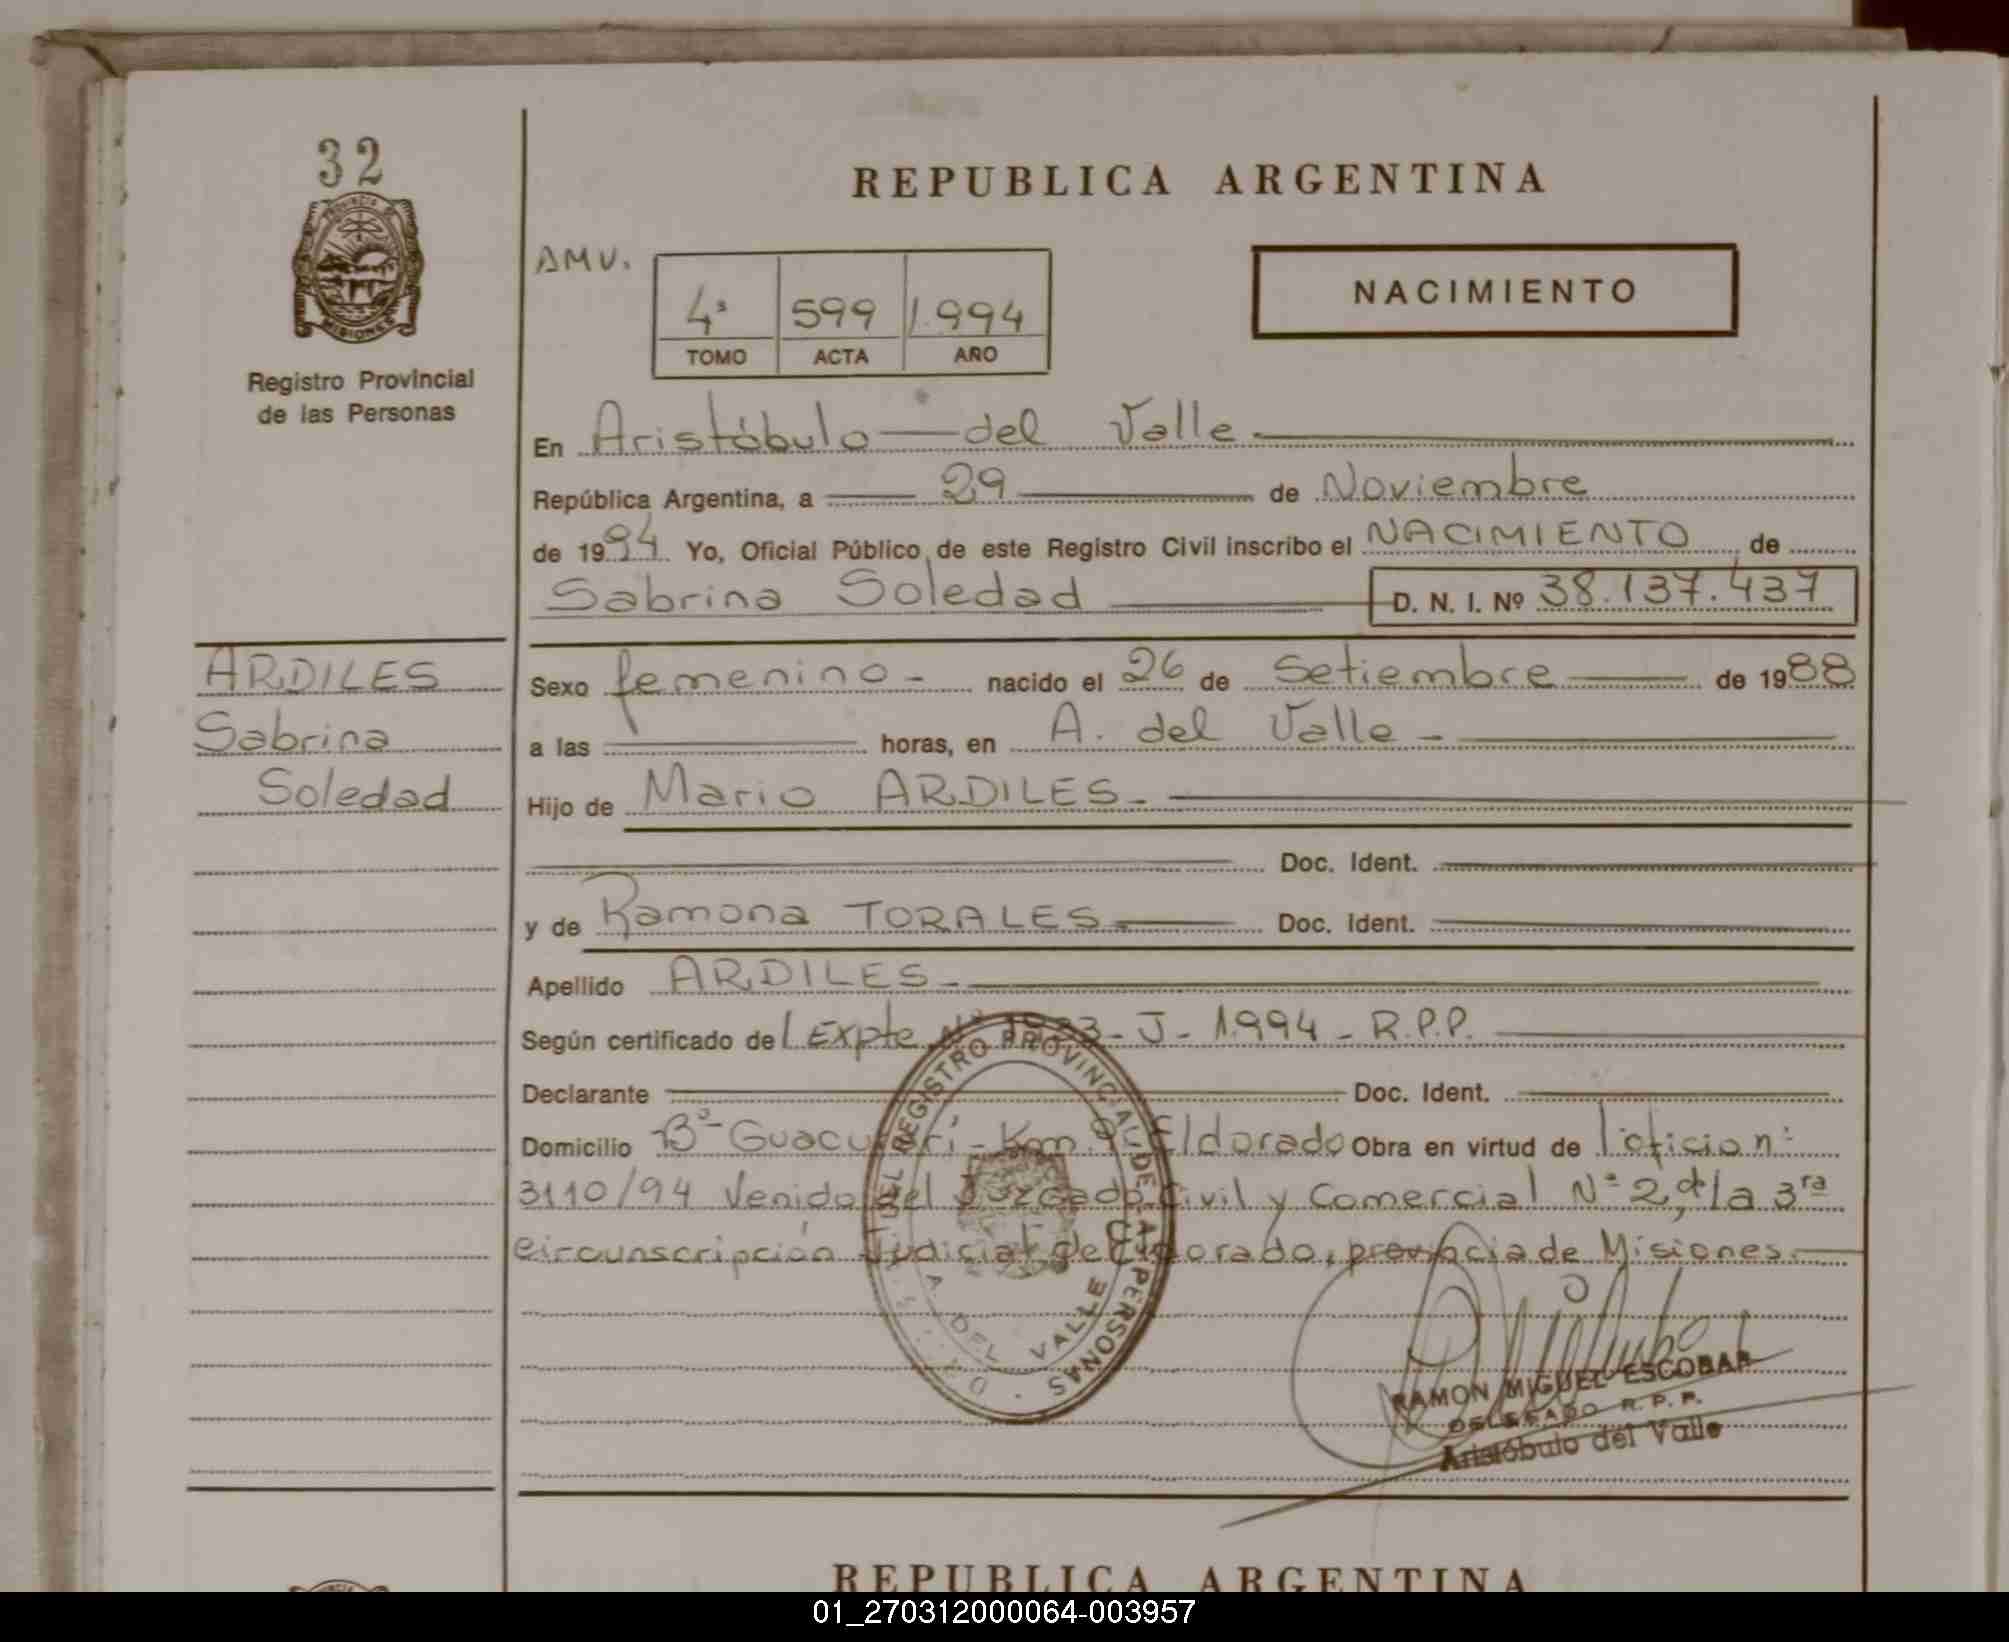 32
PROVINCIA DE
MISIONES
Registro Provincial
de las Personas
REPUBLICA ARGENTINA
AMV.
4º 599 1.994
TOMO ACTA AÑO
NACIMIENTO
En Aristóbulo del Valle
República Argentina, a 29 de Noviembre
de 1994 Yo, Oficial Público de este Registro Civil inscribo el NACIMIENTO de
Sabrina Soledad D. N. I. Nº 38.137.437
ARDILES
Sabrina
Soledad
Sexo femenino - nacido el 26 de Setiembre de 1988
a las horas, en A. del Valle -
Hijo de Mario ARDILES-
Doc. Ident.
y de Ramona TORALES- Doc. Ident.
Apellido ARDILES-
Según certificado del Expte Nº - J - 1994 - R.P.P.
Declarante Doc. Ident.
Domicilio Bº- Guacurarí - Km. Eldorado Obra en virtud de l oficio nº
3110/94 Venido del Juzgado Civil y Comercial Nº 2, d/la 3ra
circunscripción Judicial de Eldorado, provincia de Misiones.
REGISTRO PROVINCIAL DE LAS PERSONAS
A. DEL VALLE
RAMON MIGUEL ESCOBAR
DELEGADO R. P. P.
Aristóbulo del Valle
REPUBLICA ARGENTINA
01_270312000064-003957